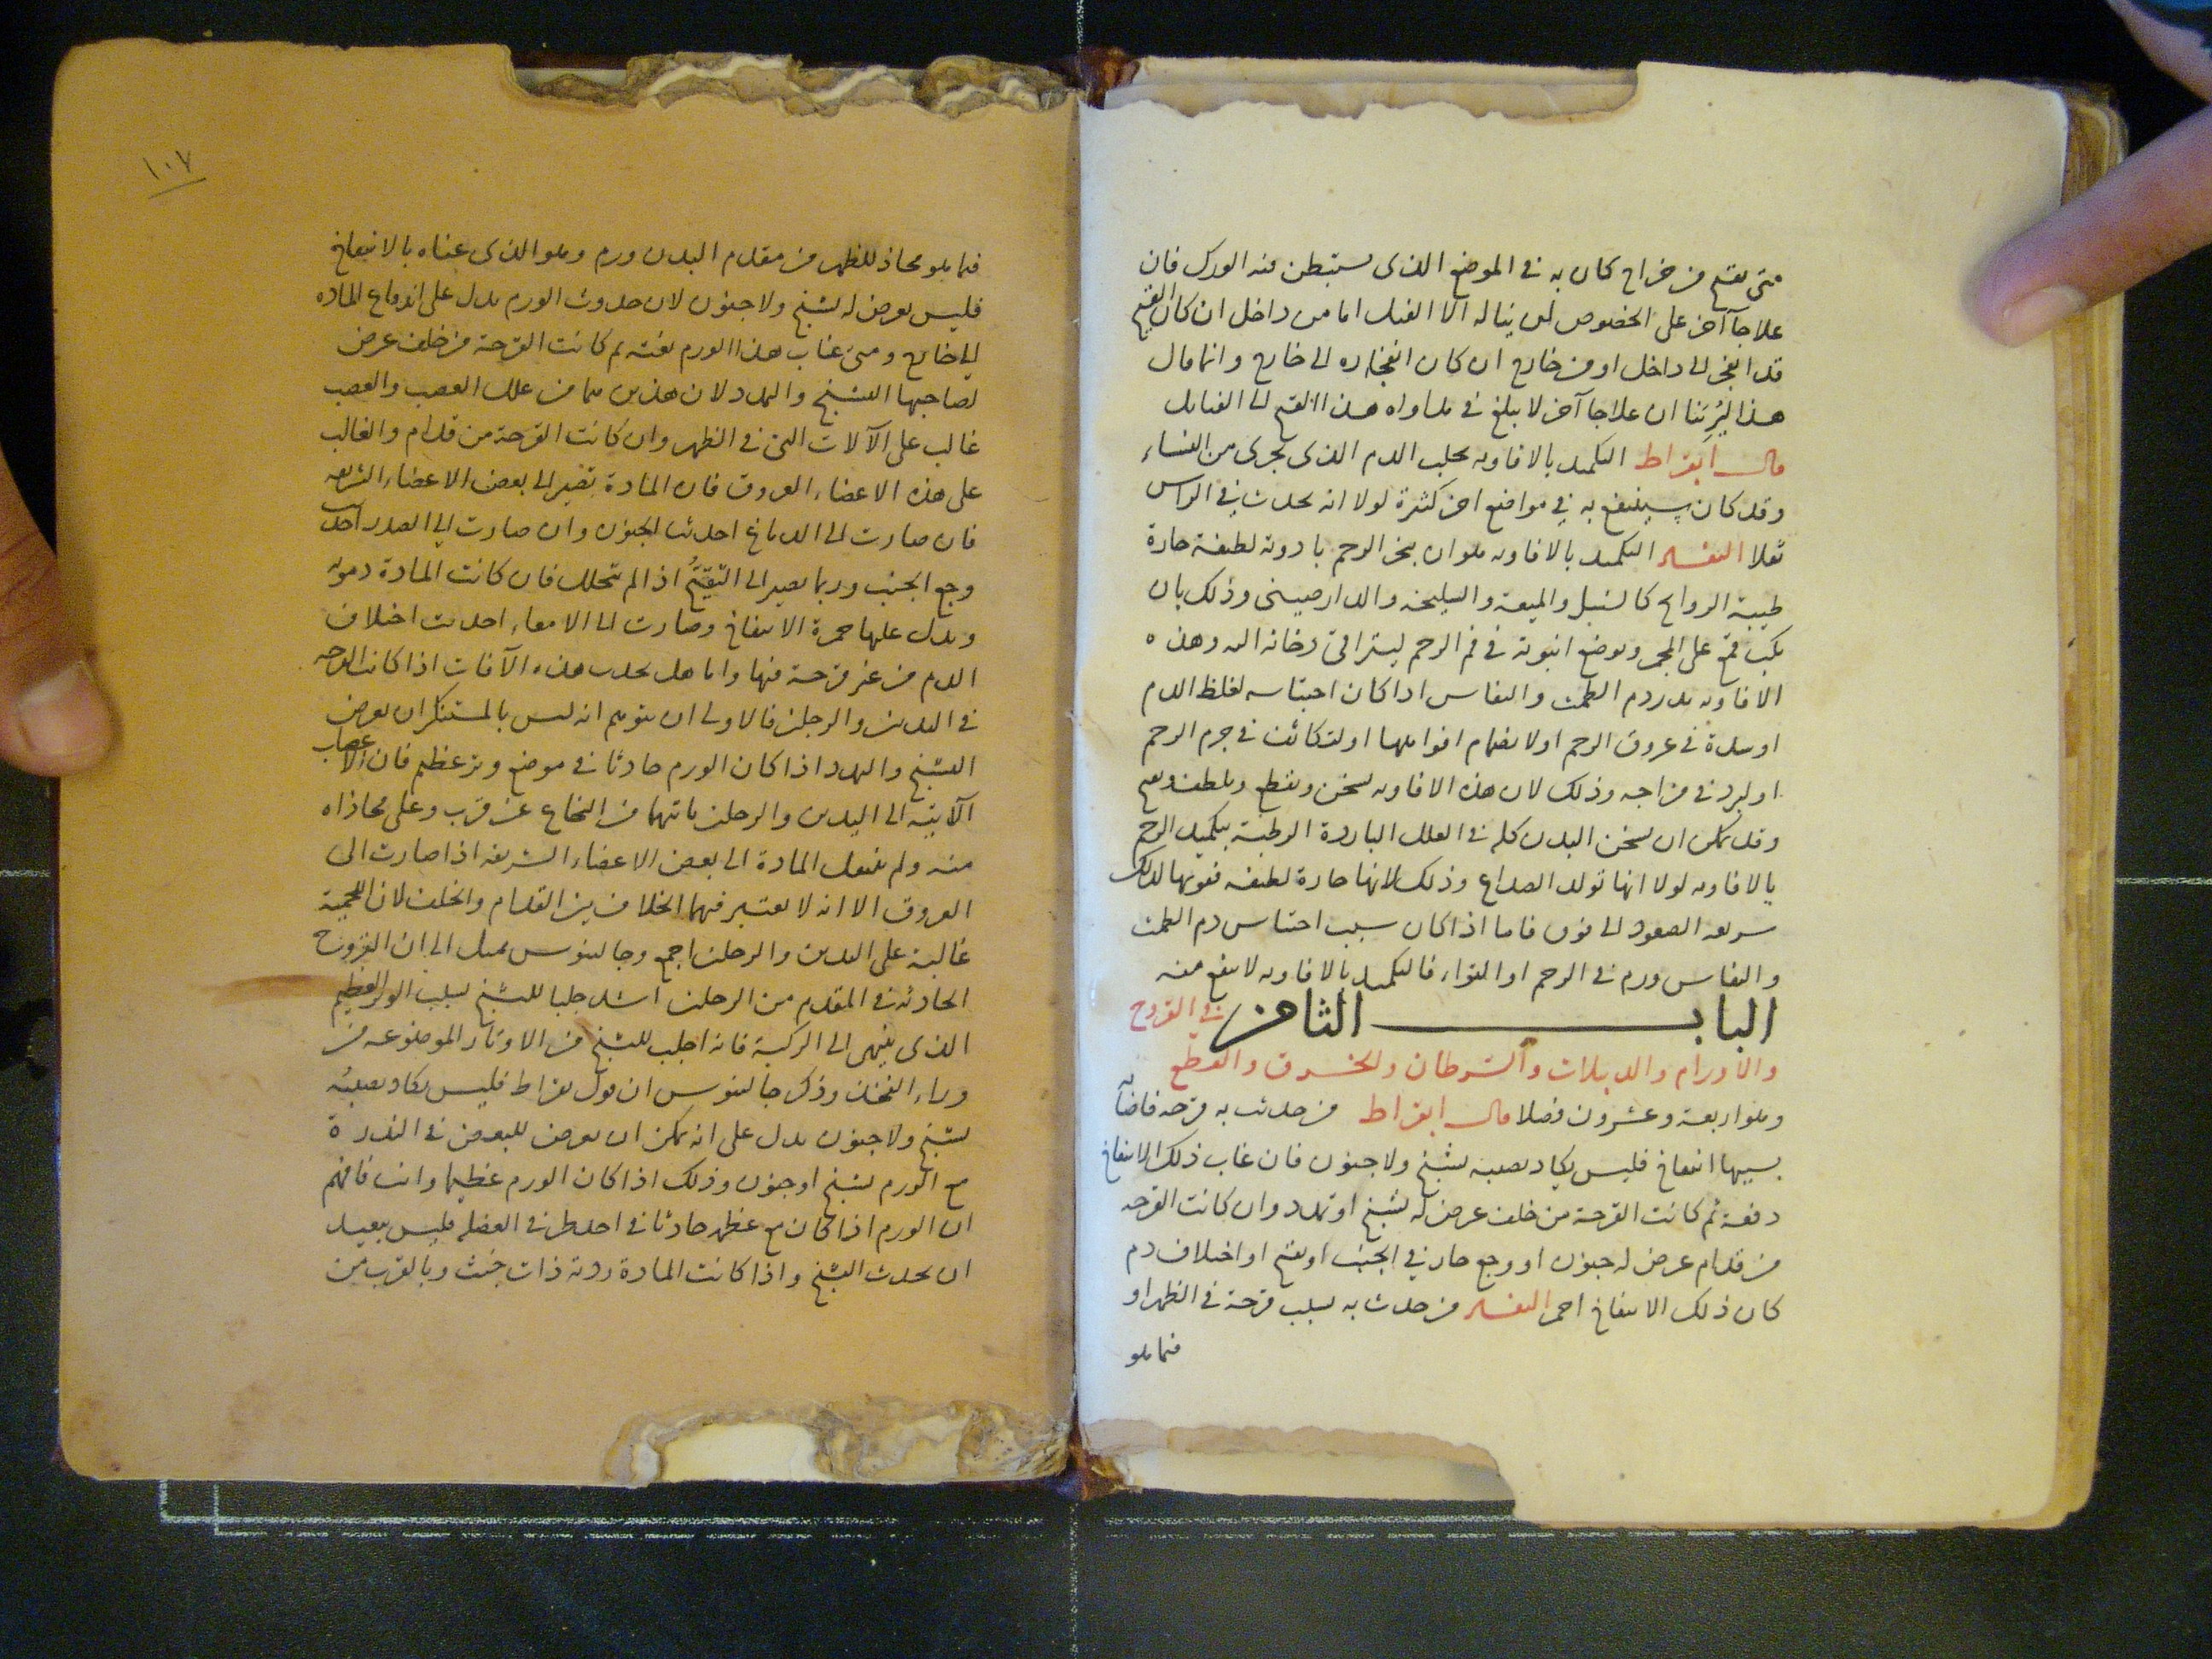 متى تقيح من خراج كان به في الموضع الذي يستبطن منه الورك فان
علاجا آخر على الخصوص لن يناله الا الفتل اما من داخل ان كان القيح
قد انفجر الى داخل او من خارج ان كان انفجاره الى خارج وانما قال
هذا ليُرِيَنا ان علاجا آخر لا يبلغ في مداواه هذا القيح الى الفتايل
قال ابقراط التكميد بالافاويه يجلب الدم الذي يجرى من النساء
وقد كان سينتفع به في مواضع اخر كثيرة لولا انه يحدث في الراس
ثقلا التفسير التكميد بالافاويه هو ان يبخر الرحم بادوية لطيفة حارة
طيبة الروايح كالسنبل والميعة والسليخه والدارصيني وذلك بان
يكب قمع على المجمر ويوضع انبوبه في فم الرحم ليتراقى دخانه اليه وهذه
الافاويه يدر دم الطمث والنفاس اذا كان احتباسه لغلظ الدم
او سدة في عروق الرحم او لانضمام افواهها او لتكاثف في جرم الرحم
او لبرد في مزاجه وذلك لان هذه الافاويه تسخن وتقطع وتلطف وتفتح
وقد يمكن ان يسخن البدن كله في العلل الباردة الرطبة بتكميد الرحم
بالافاويه لولا انها تولد الصداع وذلك لانها حارة لطيفه فقوتها لذلك
سريعه الصعود الى فوق فاما اذا كان سبب احتباس دم الطمث
والنفاس ورم في الرحم او التواء فالتكميد بالافاويه لا ينفع منه
الباب الثامن في القروح
والاورام والدبيلات والسرطان والخرق والقطع
وهو اربعة وعشرون فصلا قال ابقراط من حدثت به قرحه فاصابه
بسببها انتفاخ فليس يكاد يصيبه تشنج ولا جنون فان غاب ذلك الانتفاخ
دفعة ثم كانت القرحة من خلف عرض له تشنج او تمدد وان كانت القرحه
من قدام عرض له جنون او وجع حاد في الجنب او تقيح او اختلاف دم
كان ذلك الانتفاخ احمر التفسير من حدث به بسبب قرحة في الظهر او
فيما هو
١٠٧
فيما هو محاذ للظهر من مقدم البدن ورم وهو الذى عناه بالانتفاخ
فليس يعرض له تشنج ولا جنون لان حدوث الورم يدل على اندفاع الماده
الى خارج ومتى غاب هذا الورم بغته ثم كانت القرحة من خلف عرض
لصاحبها التشنج والتمدد لان هذين هما من علل العصب والعصب
غالب على الآلات التي في الظهر وان كانت القرحة من قدام والغالب
على هذه الاعضاء العروق فان المادة تصير الى بعض الاعضاء الشريفه
فان صارت الى الدماغ احدثت الجنون وان صارت الى الصدر احدثت
وجع الجنب وربما يصير الى التقيّح اذا لم تتحلل فان كانت المادة دمويه
ويدل عليها حمرة الانتفاخ وصارت الى الامعاء احدثت اختلاف
الدم من غير قرحة فيها واما هل يحدث هذه الآفات اذا كانت القرحه
في اليدين والرجلين فالاولى ان يتوهم انه ليس بالمستنكر ان يعرض
التشنج والتمدد اذا كان الورم حادثا في موضع وتر عظيم فان الاعصاب
الآتية الى اليدين والرجلين ياتيهما من النخاع عن قرب وعلى محاذاه
منه ولم ينتقل المادة الى بعض الاعضاء الشريفه اذا صارت الى
العروق الا انه لا يعتبر فيهما الخلاف بين القدام والخلف لان اللحمية
غالبة على اليدين والرجلين اجمع وجالينوس يميل الى ان القروح
الحادثة في المقدم من الرجلين اشد جلبا للتشنج بسبب الوتر العظيم
الذى ينتهى الى الركبة فانه اجلب للتشنج من الاوتار الموضوعه من
وراء الفخذ وذكر جالينوس ان قول بقراط فليس يكاد يصيبه
تشنج ولا جنون يدل على انه يمكن ان يعرض للبعض في الندرة
مع الورم تشنج او جنون وذلك اذا كان الورم عظيما وانت فافهم
ان الورم اذا كان مع عظمه حادثا في احد طرفى العضله فليس ببعيد
ان يحدث التشنج واذا كانت المادة رديه ذات خبث وبالقرب من